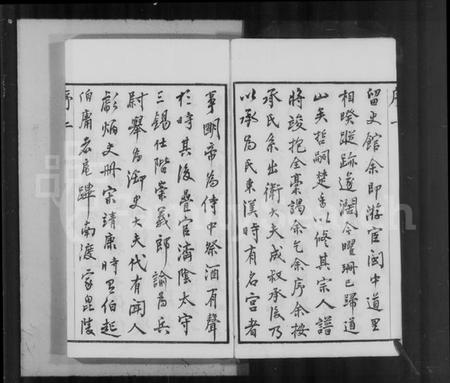 序一
留史館余即游宦閩中道里
相暌蹤跡遂濶今曜珊已歸道
山矣哲嗣楚青以修其宗人譜
將竣抱全稾謁余乞余序余按
承氏系出衛大夫成叔承後乃
以承為氏東漢時有名宮者
事明帝為侍中祭酒有聲
於時其後疊官濟陰太守
三錫仕階崇義郎諭為兵
尉舉為御史大夫代有聞人
彪炳史冊宋靖康時里伯起
伯庸扈蹕南渡家毘陵
序二